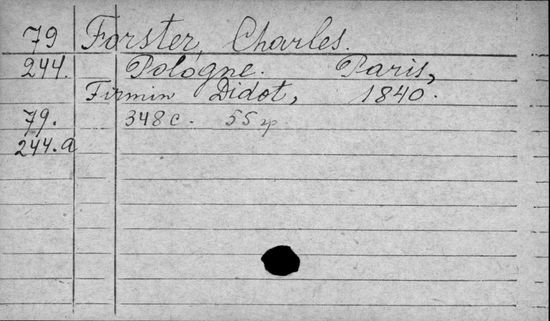 79 Forster, Charles.
244. Pologne. Paris,
Firmin Didot, 1840.
79. 348 c. 55 гр
244.a